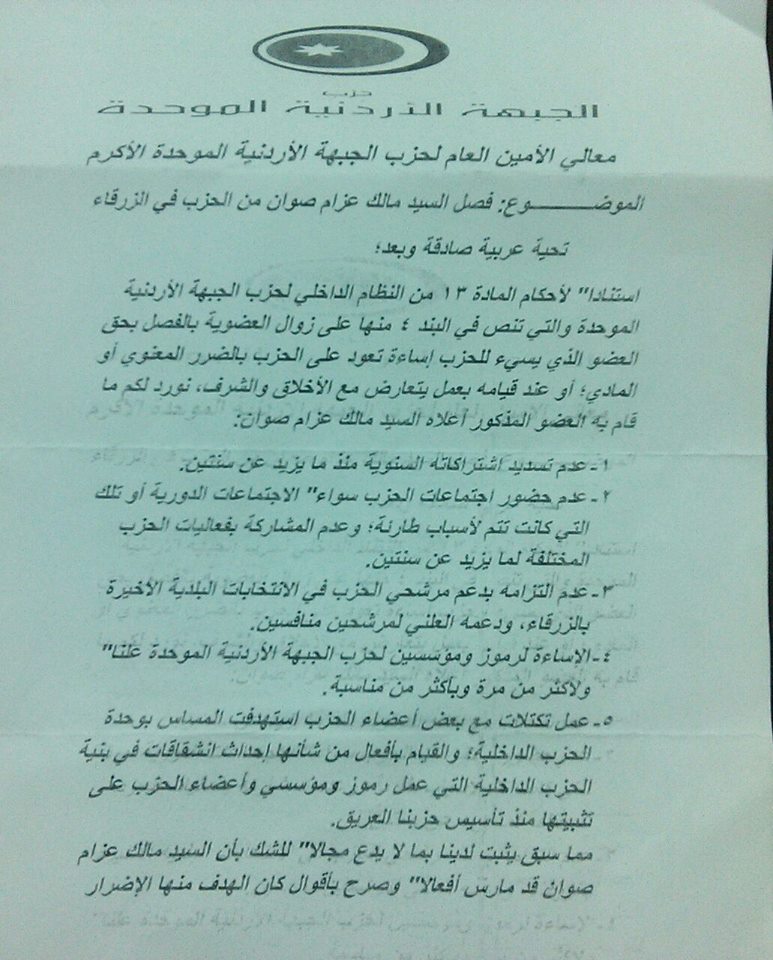 حزب
الجبهة الأردنية الموحدة
معالي الأمين العام لحزب الجبهة الأردنية الموحدة الأكرم
الموضـــــــــوع: فصل السيد مالك عزام صوان من الحزب في الزرقاء
تحية عربية صادقة وبعد؛
استنادا" لأحكام المادة ١٣ من النظام الداخلي لحزب الجبهة الأردنية
الموحدة والتي تنص في البند ٤ منها على زوال العضوية بالفصل بحق
العضو الذي يسيء للحزب إساءة تعود على الحزب بالضرر المعنوي أو
المادي؛ أو عند قيامه بعمل يتعارض مع الأخلاق والشرف، نورد لكم ما
قام به العضو المذكور أعلاه السيد مالك عزام صوان:
١- عدم تسديد اشتراكاته السنوية منذ ما يزيد عن سنتين.
٢- عدم حضور اجتماعات الحزب سواء" الاجتماعات الدورية أو تلك
التي كانت تتم لأسباب طارئة؛ وعدم المشاركة بفعاليات الحزب
المختلفة لما يزيد عن سنتين.
٣- عدم التزامه بدعم مرشحي الحزب في الانتخابات البلدية الأخيرة
بالزرقاء، ودعمه العلني لمرشحين منافسين.
٤- الإساءة لرموز ومؤسسين لحزب الجبهة الأردنية الموحدة علنا"
ولاكثر من مرة وبأكثر من مناسبة.
٥- عمل تكتلات مع بعض أعضاء الحزب استهدفت المساس بوحدة
الحزب الداخلية؛ والقيام بأفعال من شأنها إحداث انشقاقات في بنية
الحزب الداخلية التي عمل رموز ومؤسسي وأعضاء الحزب على
تثبيتها منذ تأسيس حزبنا العريق.
مما سبق يثبت لدينا بما لا يدع مجالا" للشك بأن السيد مالك عزام
صوان قد مارس أفعالا" وصرح بأقوال كان الهدف منها الإضرار